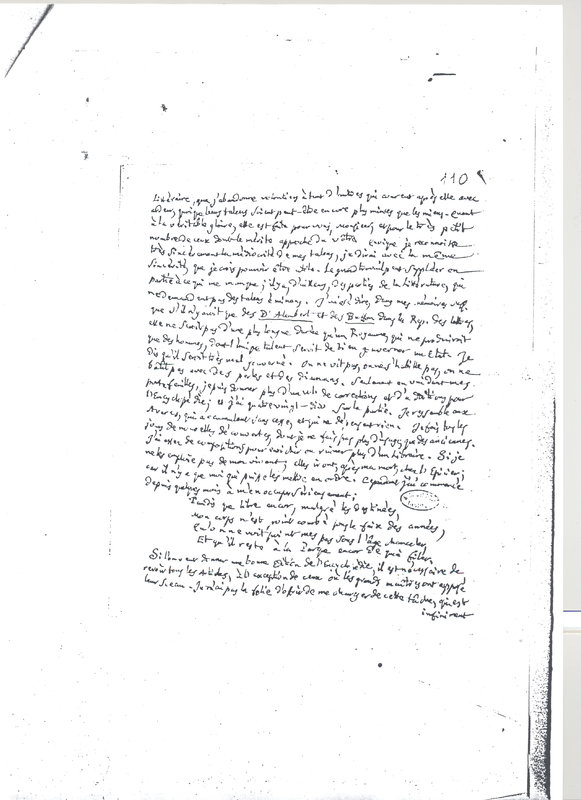 110
Littéraire, que j'abandonne volontiers à tant d'autres qui courent après elle avec
ardeur, quoique leurs talens soient peut-être encore plus minces que les miens. quant
à la véritable gloire, elle est faite pour vous, monsieur, et pour le très petit
nombre de ceux dont le mérite approche du vôtre. quoique je reconnoisse
très sincèrement la médiocrité de mes talens, je dirai avec la même
sincérité, que je crois pouvoir être utile. Le grand travail peut suppléer en
partie à ce qui me manque, j'il y a d'ailleurs, des parties de la littérature, qui
ne demandent pas des talens éminens. J'ai osé dire dans mes mémoires
que s'il n'y avoit que des D'Alembert et des Buffon dans la Rep. des lettres,
elle ne seroit pas d'une plus longue durée qu'un Royaume, qui ne produiroit
que des hommes, dont l'unique talent seroit de bien gouverner un Etat. Je
dis qu'il seroit très mal gouverné. On ne vit pas, on ne s'habille pas, on ne
bâtit pas avec des perles et des diamans. Seulement en vuidant mes
portefeuilles, je puis donner plus d'un de corrections et d'additions pour
l'Encyclopédie; et j'ai quatre vingt-dix sur la partie. Je ressemble aux
Avares, qui accumulent sans cesse, et qui ne dépensent rien. Je fais tous les
jours de nouvelles découvertes, dont je ne fais pas plus d'usage, que des anciennes.
J'ai assez de compositions pour enrichir ou ruiner plus d'un libraire. Si je
ne les imprime pas de mon vivant, elles iront, après ma mort, chez l'Epicier;
car il n'y a que moi qui puisse les mettre en ordre. Cependant j'ai commencé
depuis quelques mois à m'en occuper sérieusement;
Tandis que libre encor, malgré les destinées,
Mon corps n'est point courbé sous le faix des années,
Qu'on ne voit point mes pas sous l'âge chanceler,
Et qu'il reste à la Parque encor de quoi filer.
Si l'on veut donner une bonne Edition de l'Encyclopédie, il est nécessaire de
revoir tous les Articles, à l'exception de ceux où les grands maîtres ont apposé
leur sceau. Je n'ai pas la folie d'offrir de me charger de cette tâche, qui est
infiniment